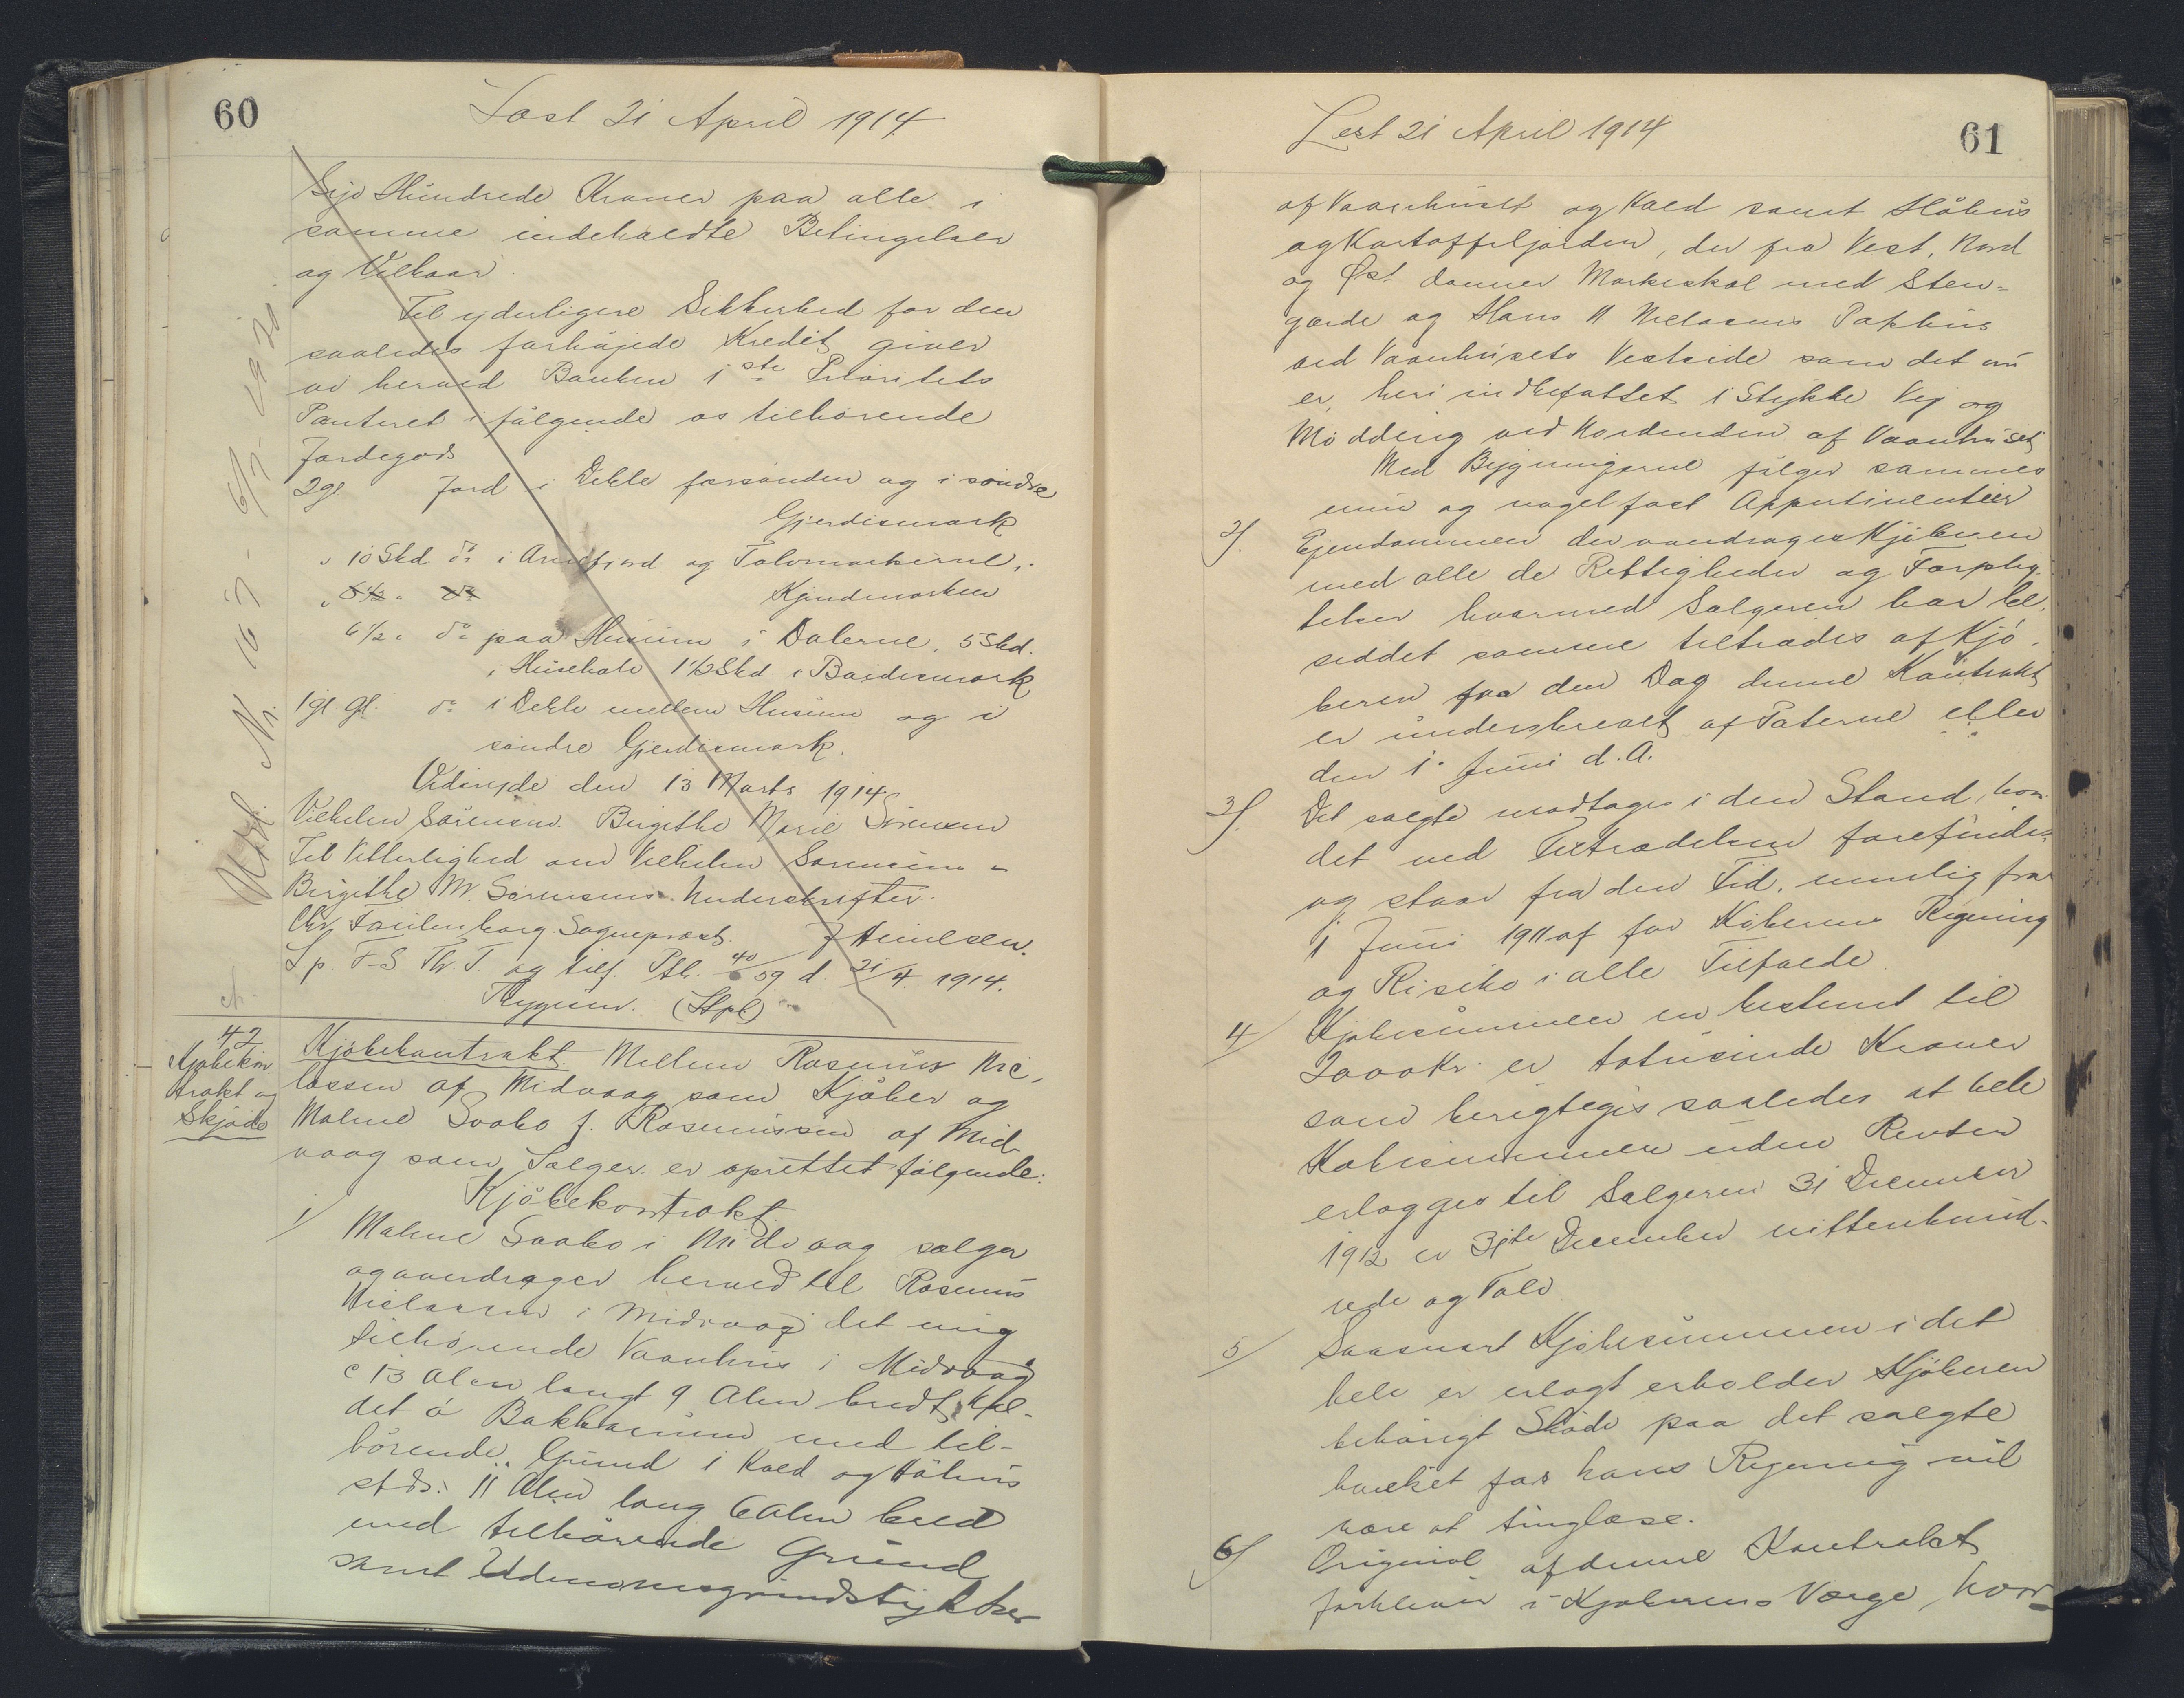 60
Læst 21 April 1914
Syv Hundrede Kroner paa alle i
samme indeholdte Betingelser
og Vilkaar.
Til yderligere Sikkerhed for den
saaledes forhøjede Kredit giver
vi herved Banken 1ste Prioritets
Panteret i følgende os tilhørende
Jordegods
2 gl Jord i Deble forsønden og i søndre
Gjerdismark
" 10 Skd do i Arnefjord og Tolvmarkerne,
Kjendmarken
6 1/2 " do paa Husum i Dalerne, 5 Skd.
i Husehale 1 1/2 Skd i Boidesmark
1 gl gl. do i Deble mellem Husum og i
søndre Gjerdismark.
Viderejde den 13 Marts 1914
Vilhelm Sørensen. Birgithe Marie Sørensen
Til Vitterlighed om Vilhelm Sørensens og
Birgithe M. Sørensens Underskrifter.
Chr. Faulenborg. Sognepræst. J Heinesen.
L.p. F-S Th. T. og tilf. Ptb. 40/59 d. 21/4 1914.
Trygum. (Stpl)
Udsl. Nr. 167 - 6/7 - 1920.
42
Kjøbekon
trakt og
Skjøde
Kjøbekontrakt. Mellem Rasmus Nic-
lassen af Midvaag som Kjøber og
Malene Svabo f. Rasmussen af Mid-
vaag som Sælger er oprettet følgende:
Kjøbekontrakt
1/ Malene Svabo i Midvaag sælger
og overdrager herved til Rasmus
Niclassen i Midvaag det mig
tilhørende Vaanhus i Midvaag
c 13 Alen langt 9 Alen bredt, kal-
det á Bakkanum med til-
hørende Grund 1 Kold og Høhus
stds: 11 Alen lang 6 Alen bred
med tilhørende Grund
samt Udenomsgrundstykker
61
Læst 21 April 1914
af Vaanhuset og Kold samt Høhus
og Kartoffeljorden, der fra Vest, Nord
og Øst danner Markeskel med Sten-
gærde og Hans N. Nielasens Pakhus
ved Vaanhusets Vestside som det nu
er, heri indbefattet 1 Stykke Vej og
Mødding ved Nordenden af Vaanhuset
Med Bygningerne følger sammes
mur og nagelfast Appertinentier
2/. Ejendommen der overdrages Kjøberen
med alle de Rettigheder og Forplig-
telser hvormed Sælgeren har be-
siddet samme tiltrædes af Kjø-
beren fra den Dag denne Kontrakt
er underskrevet af Paterne eller
den 1. Juni d. A.
3/. Det solgte modtages i den Stand, hvori
det ved Tiltrædelsen forefindes
og staar fra den Tid, nemlig fra
1 Juni 1911 af for Køberens Regning
og Risiko i alle Tilfælde.
4/ Kjøbesummen er bestemt til
2000 Kr. er totusinde Kroner
som berigtiges saaledes at hele
Købesummen uden Renter
erlægges til Sælgeren 31 December
1912 er 31te December nittenhund-
rede og Tolv
5/ Saasnart Kjøbesummen i det
hele er erlagt erholder Kjøberen
behørigt Skøde paa det solgte
hvilket for hans Regning vil
være at tinglæse.
6/ Original af denne Kontrakt
forbliver i Kjøberens Værge, hvor-